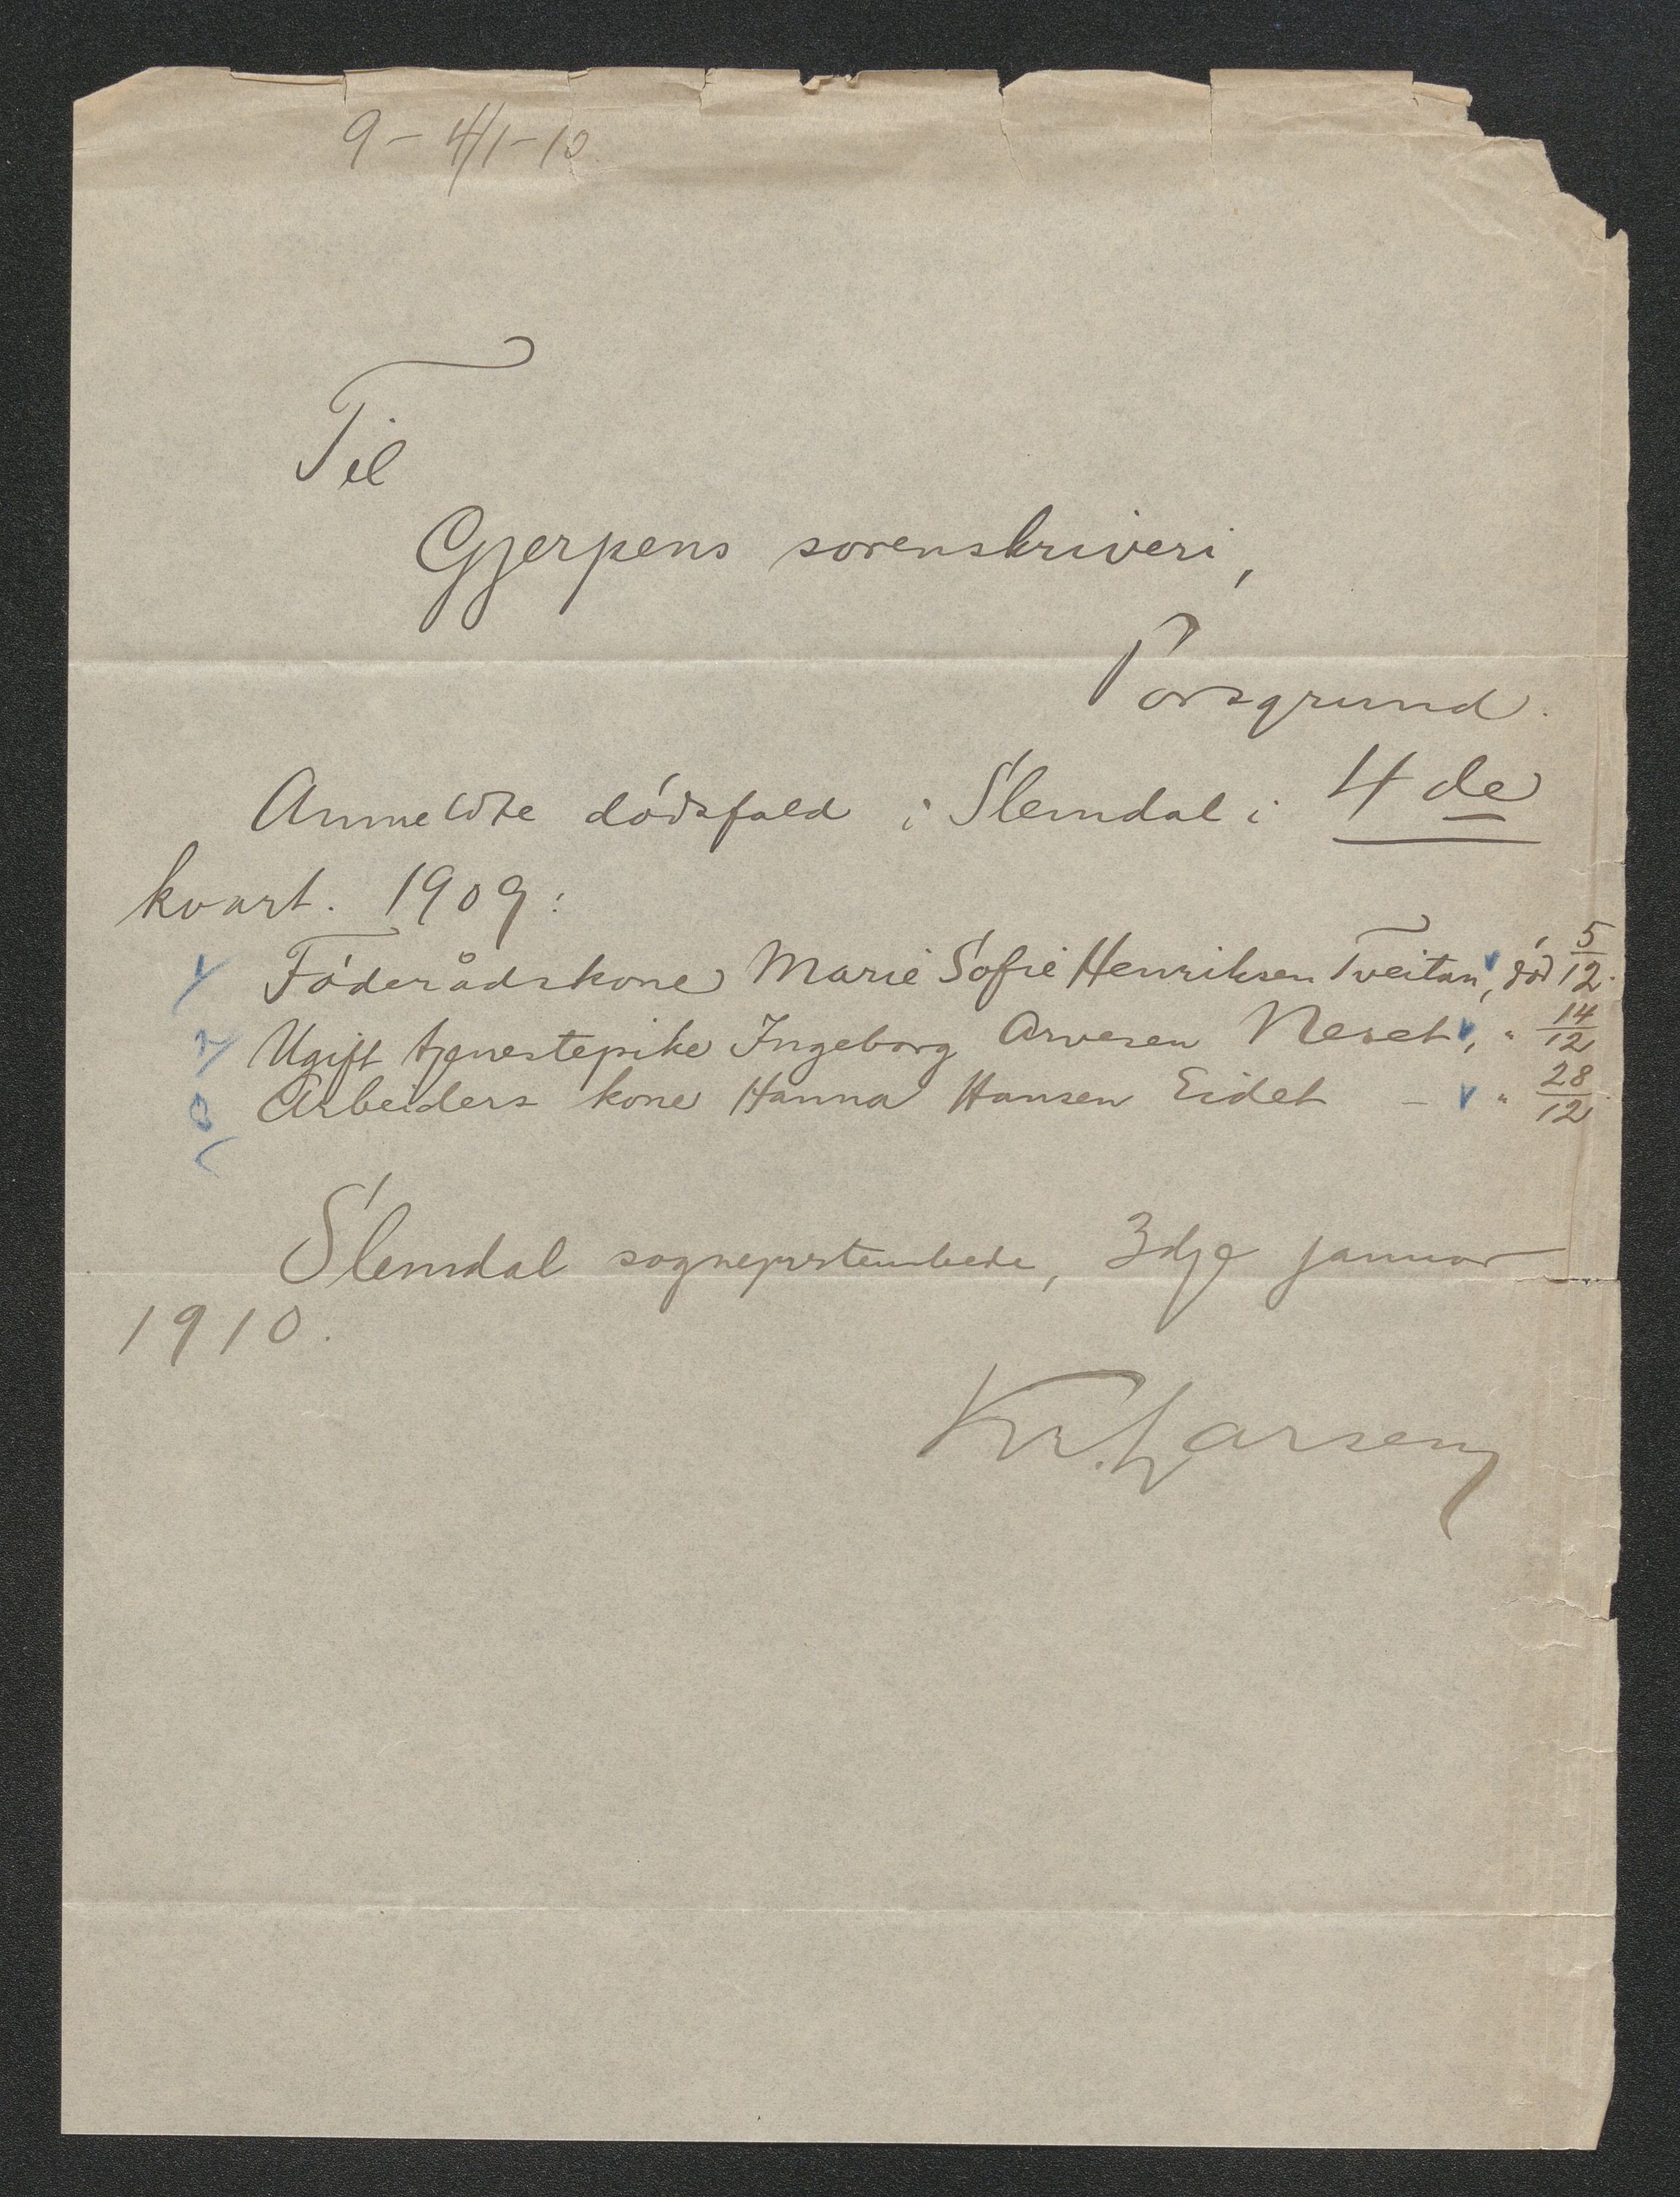 9 - 4/1-10
Til
Gjerpens sorenskriveri,
Porsgrund.
Anmeldte dödsfald i Slemdal i 4de
kvart. 1909:
Föderådskone Marie Sofie Henriksen Tveitan, död 5/12.
Ugift tjenestepike Ingeborg Arvesen Neset, " 14/12
Arbeiders kone Hanna Hansen Eidet - " 28/12.
Slemdal sogneprstembede, 3dje januar
1910.
Kr. Larsen